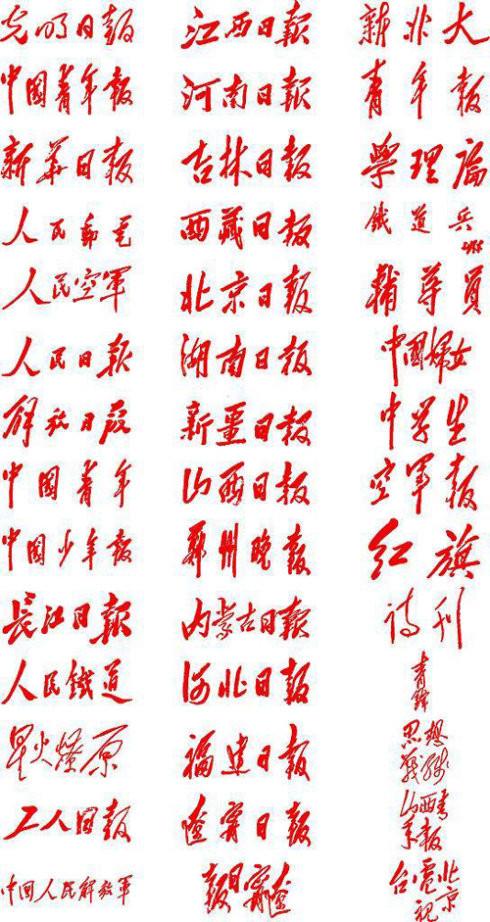 光明日報
中國青年報
新華日報
人民郵電
人民空軍
人民日報
解放日報
中國青年
中國少年報
長江日報
人民鐵道
星火燎原
工人日報
中国人民解放軍
江西日報
河南日報
吉林日報
西藏日報
北京日報
湖南日報
新疆日報
山西日報
鄭州晚報
内蒙古日報
河北日報
福建日報
遼寧日報
遼寧日報
新北大
青年報
學理論
鐵道兵
輔導員
中國婦女
中學生
空軍報
紅旗
詩刊
青鋒
思想
戰綫
山西青
年報
北京
電視
台